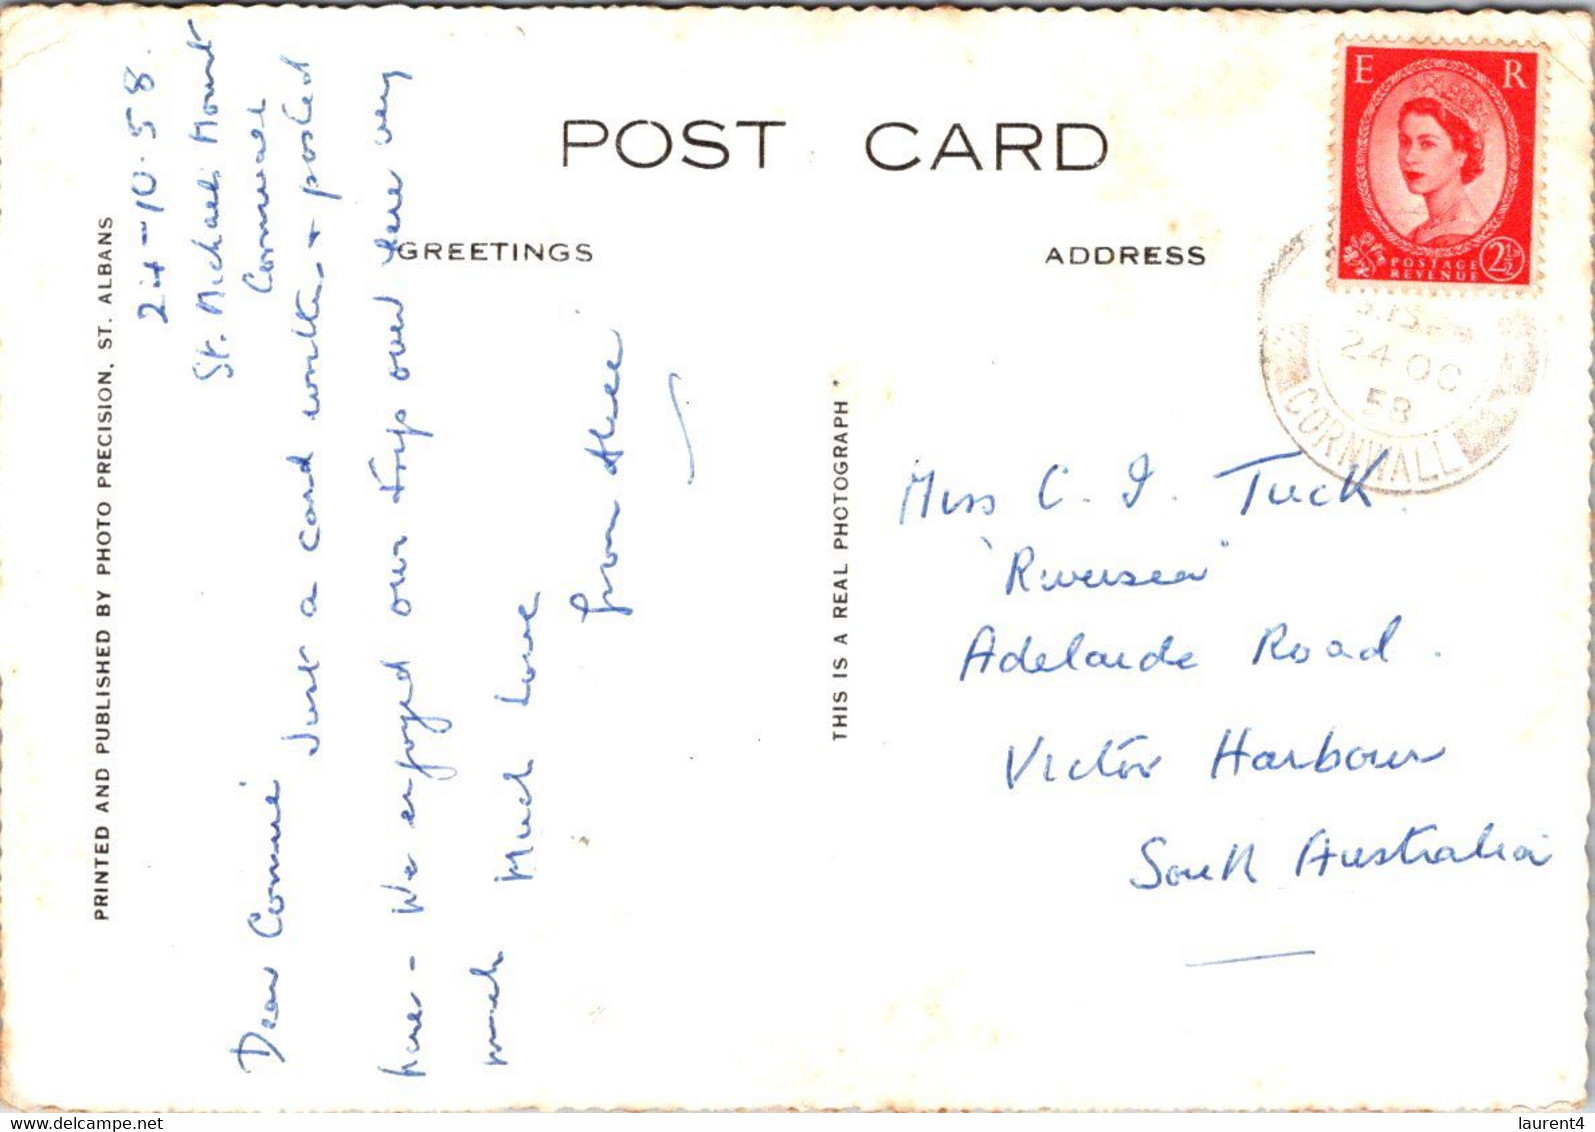 POST CARD
GREETINGS
ADDRESS
E R
POSTAGE
REVENUE
2½D
24 OC
58
CORNWALL
PRINTED AND PUBLISHED BY PHOTO PRECISION, ST. ALBANS
24-10.58.
St. Michaels Mount
Cornwall
Dear Connie
Just a card written + posted
here - We enjoyed our trip over here very
much Much love
from
THIS IS A REAL PHOTOGRAPH
Miss C. I. Tuck.
"Riversea"
Adelaide Road.
Victor Harbour
South Australia
delcampe.net
laurent4